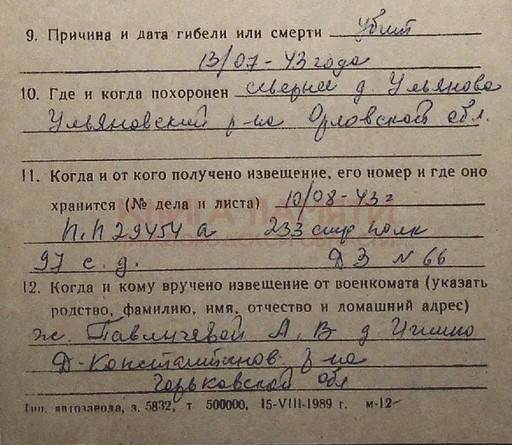 9. Причина и дата гибели или смерти убит
13/07-43 года
10. Где и когда похоронен севернее д. Ульянова
Ульяновский р-на Орловской обл.
11. Когда и от кого получено извещение, его номер и где оно
хранится (№ дела и листа) 10/08-43 г
КНИГА ПАМЯТИ
НИЖЕГОРОДСКОЙ ОБЛАСТИ
п.п 29454 а 233 стр полк
97 с. д. Д 3 N 66
12. Когда и кому вручено извещение от военкомата (указать
родство, фамилию, имя, отчество и домашний адрес)
ж. А. В д
Д-Константинов р-на
Горьковской обл
Тип. автозавода, з. 5832, т 500000, 15-VIII-1989 г. м-12